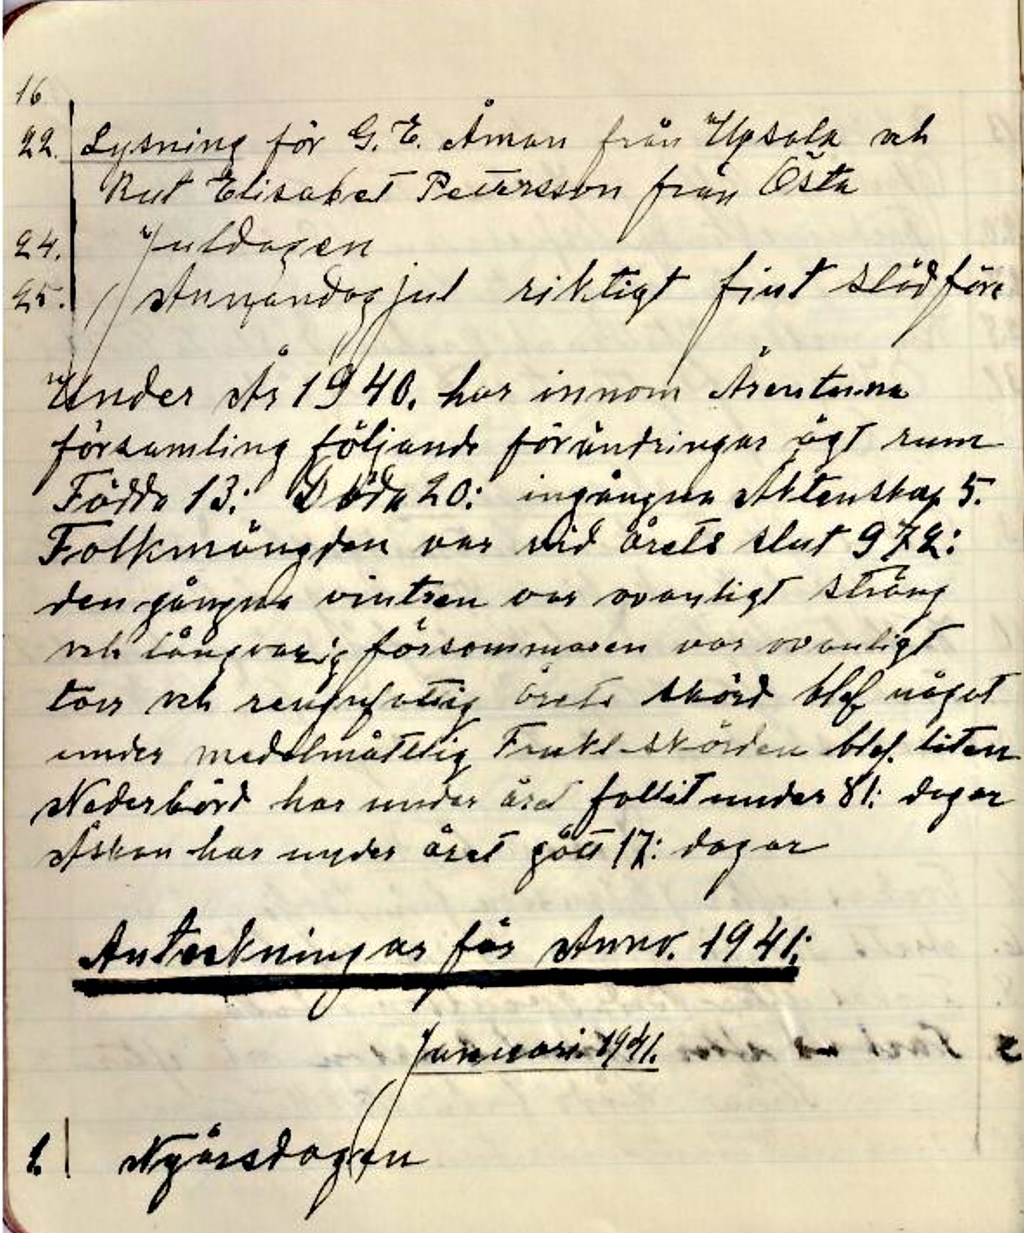 16
22. Lysning för G. E. Åman från Upsala och
Rut Elisabet Pettersson från Östa
24. Juldagen
25. Annandag jul riktigt fint slädföre
Under År 1940. har innom Ärentuna
församling följande förändringar ägt rum
Födda 13: Döda 20: ingångna Äktenskap 5.
Folkmängden var vid årets slut 972:
den gångna vintren var ovanligt sträng
och långvarig försommaren var ovanligt
torr och rengnfattig årets skörd blef något
under medelmåttlig Frukt skörden blef. liten
Nederbörd har under året fallit under 81: dagar
Åskan har under året gått 17: dagar
Anteckningar för Anno. 1941:
Januari 1941.
1. Nyårsdagen